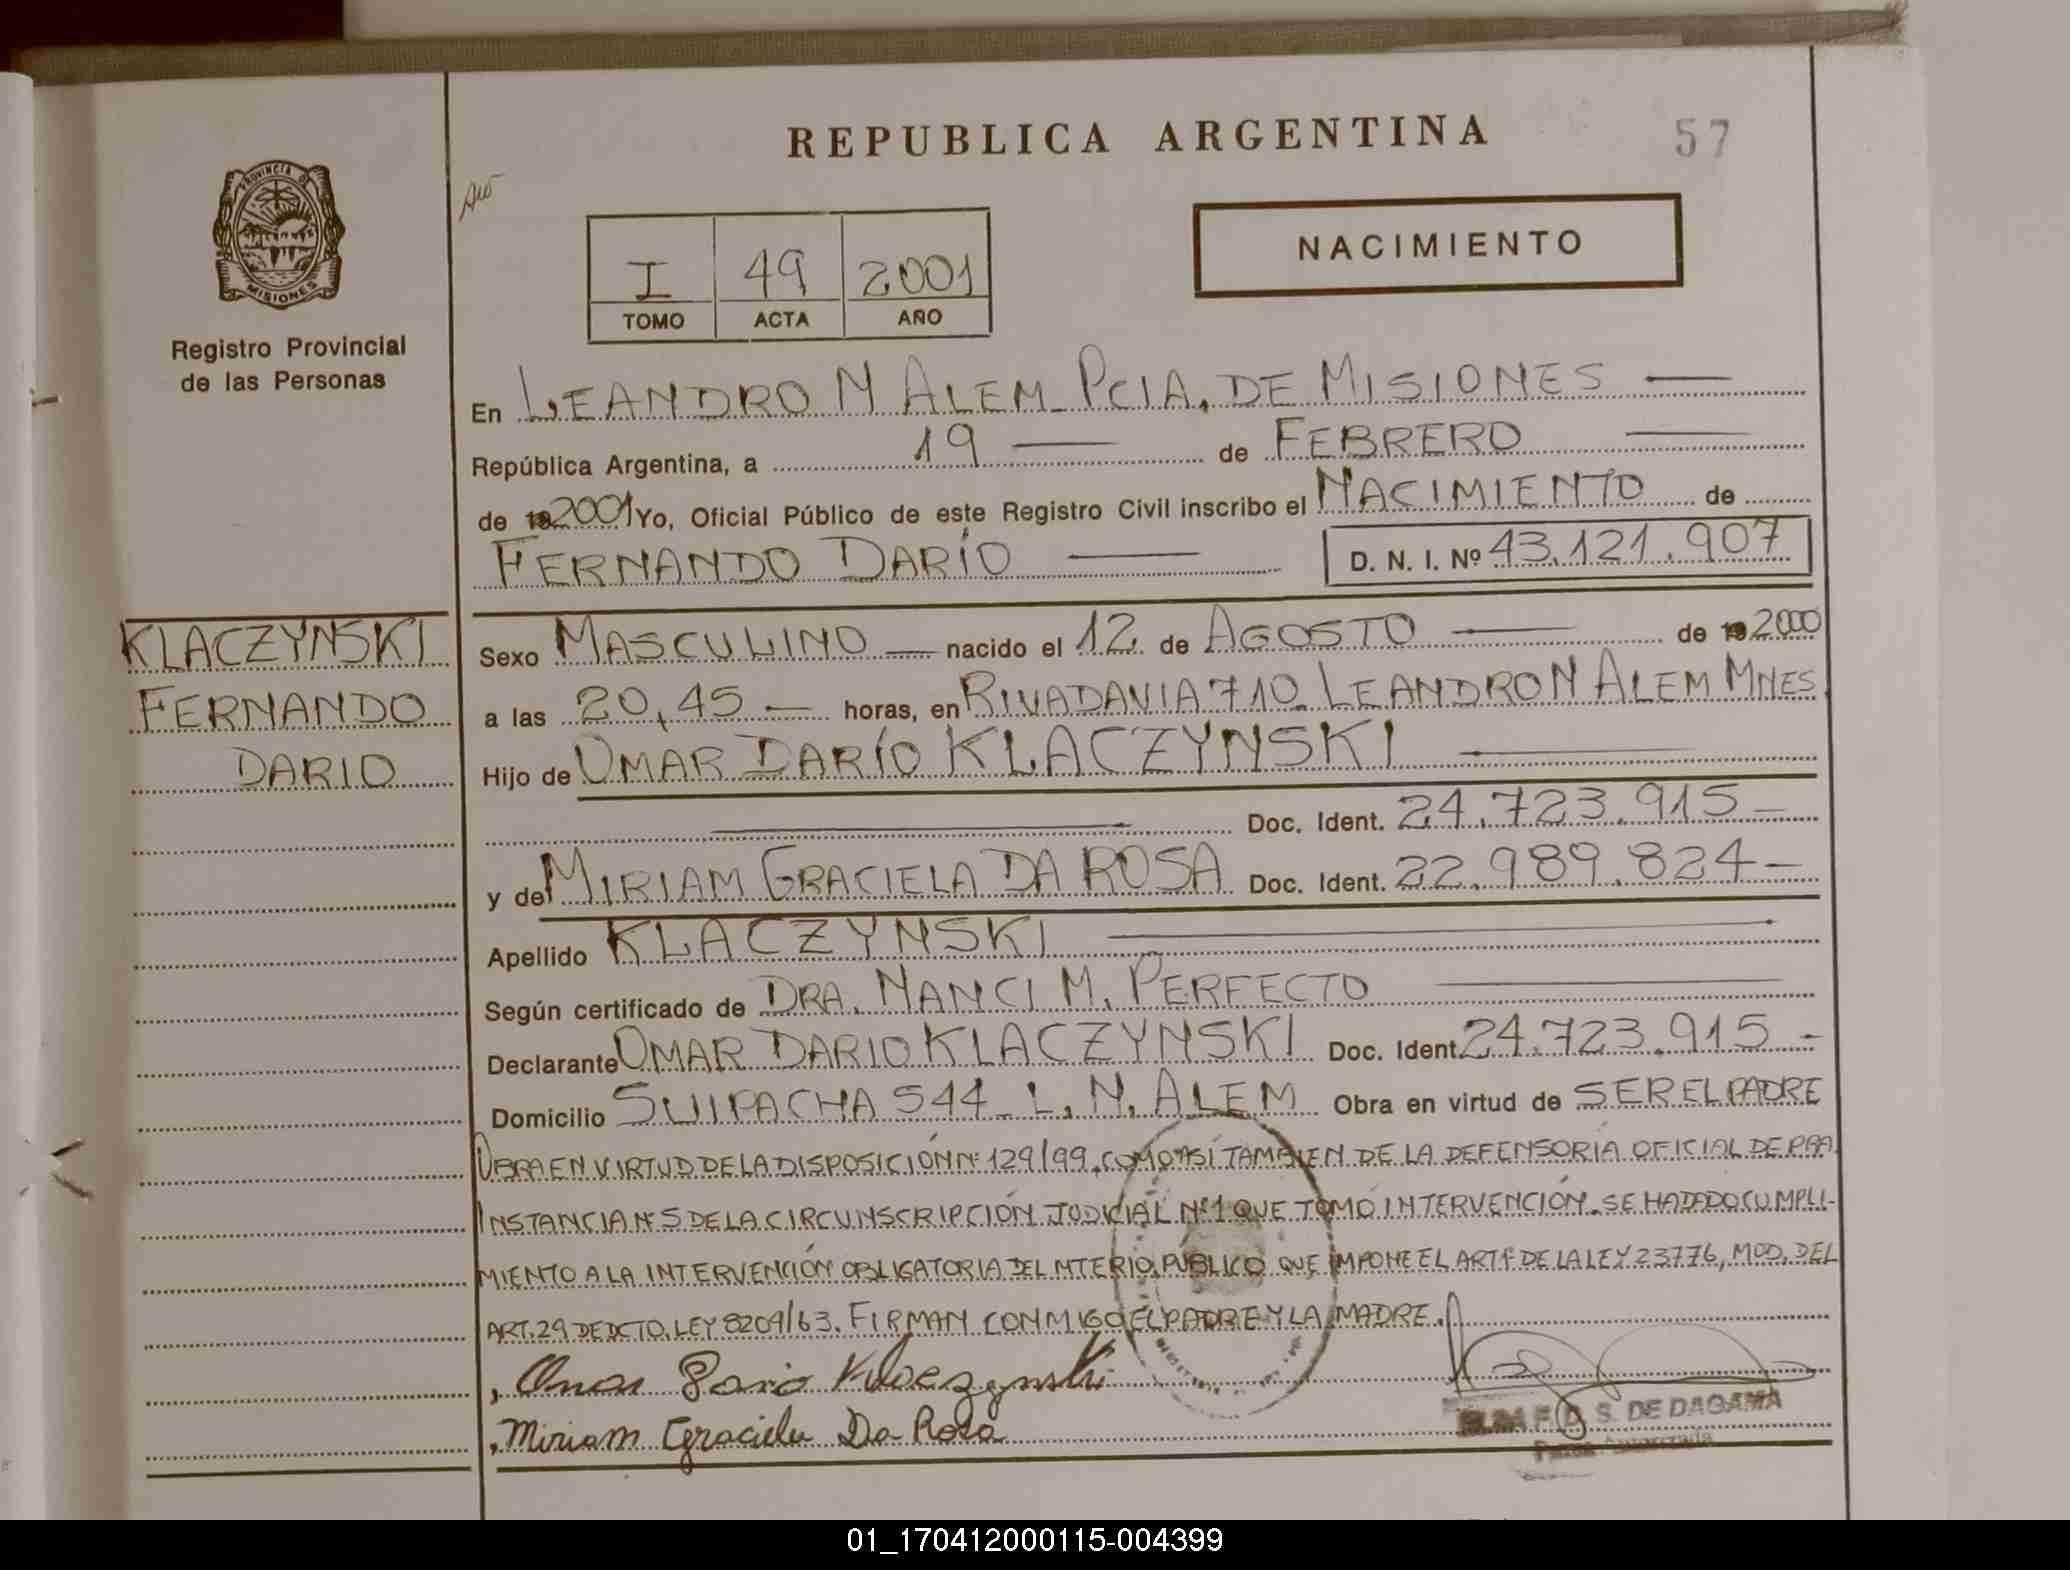 REPUBLICA ARGENTINA
57
PROVINCIA DE
MISIONES
Registro Provincial
de las Personas
I 49 2001
TOMO ACTA AÑO
NACIMIENTO
En LEANDRO N ALEM PCIA. DE MISIONES
República Argentina, a 19 de FEBRERO
de 192001 Yo, Oficial Público de este Registro Civil inscribo el NACIMIENTO de
FERNANDO DARÍO
D. N. I. Nº 43.121.907
KLACZYNSKI
FERNANDO
DARIO
Sexo MASCULINO nacido el 12 de AGOSTO de 192000
a las 20,45 horas, en RIVADAVIA 710. LEANDRO N ALEM MNES.
Hijo de OMAR DARÍO KLACZYNSKI
Doc. Ident. 24.723.915
y de MIRIAM GRACIELA DA ROSA Doc. Ident. 22.989.824
Apellido KLACZYNSKI
Según certificado de DRA. NANCI M. PERFECTO
Declarante OMAR DARIO KLACZYNSKI Doc. Ident. 24.723.915
Domicilio SUIPACHA 544 L. N. ALEM Obra en virtud de SER EL PADRE
OBRA EN VIRTUD DE LA DISPOSICIÓN Nº 129/99, COMO ASÍ TAMBIEN DE LA DEFENSORÍA OFICIAL DE PRA.
INSTANCIA Nº 5 DE LA CIRCUNSCRIPCIÓN JUDICIAL Nº 1 QUE TOMÓ INTERVENCIÓN. SE HA DADO CUMPLI-
MIENTO A LA INTERVENCIÓN OBLIGATORIA DEL MTERIO. PÚBLICO QUE IMPONE EL ART 1º DE LA LEY 23776, MOD. DEL
ART. 29 DE DCTO. LEY 8204/63. FIRMAN CONMIGO EL PADRE Y LA MADRE.
Omar Dario Klaczynski
Miriam Graciela Da Rosa
ELSA F. D. S. DE DAGAMA
01_170412000115-004399